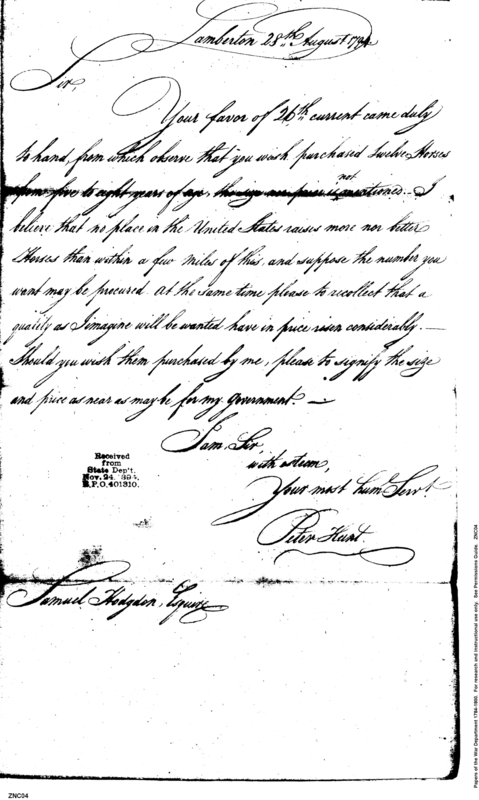 Lamberton 28th August 1794
Sir,
Your favor of 26th current came duly
to hand, from which observe that you wish purchased Twelve Horses
from five to eight years of age, the size nor price is not mentioned. I
believe that no place in the United States raises more nor better
Horses than within a few miles of this, and suppose the number you
want may be procured. At the same time please to recollect that a
quality as I imagine will be wanted have in price risen considerably. —
Should you wish them purchased by me, please to signify the size
and price as near as may be for my government. —
I am, Sir,
with esteem,
Your most huml Servt
Peter Hunt.
Received
from
State Dep't.
Nov. 24, 1894,
R.P.O. 401310.
Samuel Hodgdon, Esquire
Papers of the War Department 1784-1800. For research and instructional use only. See Permissions Guide. ZNC04
ZNC04